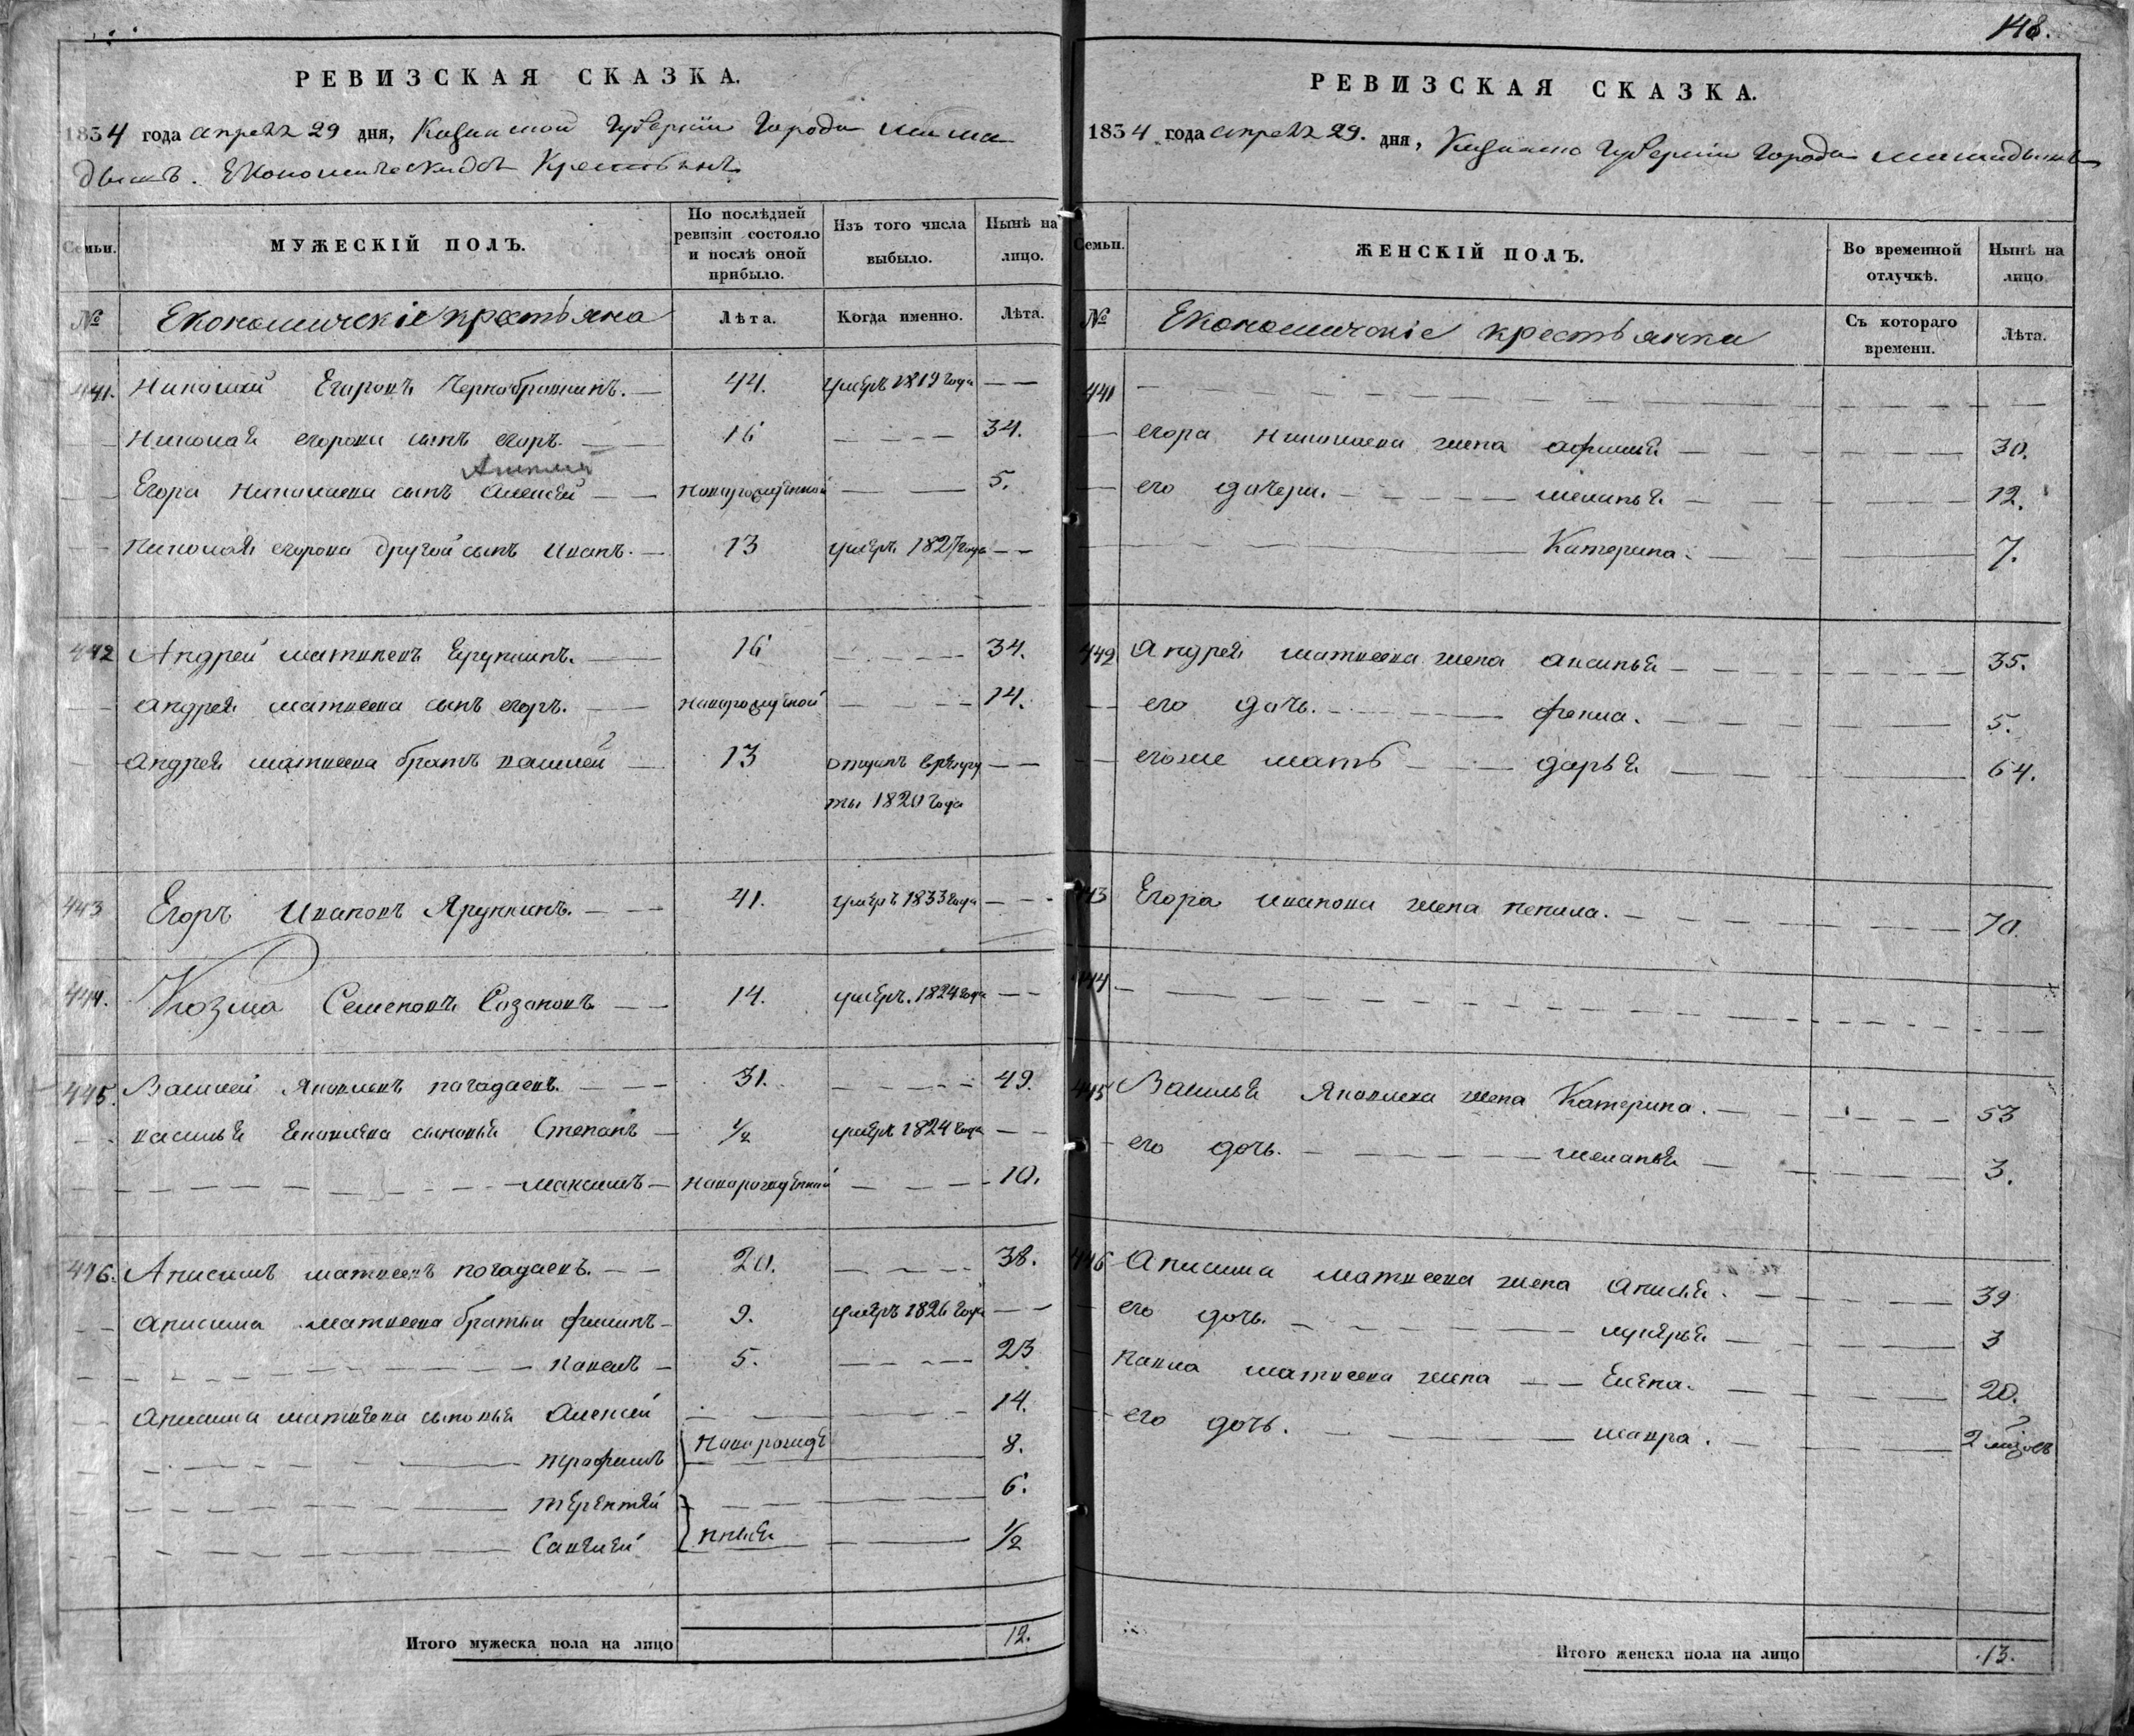 148.
РЕВИЗСКАЯ СКАЗКА.
1834 года апреля 29 дня, Казанской Губернии Города Мама
дышъ. Економическихъ Крестьянъ
Семьи. МУЖЕСКІЙ ПОЛЪ. По послѣдней ревизіи состояло и послѣ оной прибыло. Изъ того числа выбыло. Нынѣ на лицо.
№ Економическіе крестьяна Лѣта. Когда именно. Лѣта.
441. Николай Егоровъ Чернобровкинъ. 44. умеръ 1819 года
Николая егорова сынъ егоръ. 16 34.
Егора Николаева сынъ Алексей новорожденной 5.
Николая егорова другой сынъ Иванъ. 13 умеръ 1827 года
442 Андрей матвеевъ Ерункинъ. 16 34.
андрея матвеева сынъ егоръ. новорожденной 14.
андрея матвеева братъ василей 13 отданъ врекру
ты 1820 года
443 Егоръ Ивановъ Ярункинъ. 41. умеръ 1833 года
444. Козма Семеновъ Созоновъ 14. умеръ. 1824 года
445. Василей Яковлевъ погадаевъ. 31. 49.
василья Яковлева сыновья Степанъ 1/2 умеръ 1824 года
максимъ новорожденной 10.
446. Анисимъ матвеевъ погадаевъ. 20. 38.
анисима матвеева братьи филипъ 9. умеръ 1826 года
павелъ 5. 23
анисима матвеева сыновья Алексей 14.
трофимъ новорожде 8.
терентей 6.
Савелей нныя 1/2
Итого мужеска пола на лицо 12.
РЕВИЗСКАЯ СКАЗКА.
1834 года апреля 29. дня, Казанско Губернии Города мамадышъ
Семьи. ЖЕНСКІЙ ПОЛЪ. Во временной отлучкѣ. Нынѣ на лицо
№ Економические крестьянки Съ котораго времени. Лѣта.
441
егора николаева жена афимья 30.
его дочери. меланья 12.
Катерина. 7.
442 андрея матвеева жена аксинья 35.
его дочь. фекла. 5.
егоже мать дарья 64.
443 Егора иванова жена ненила. 70.
444.
445 Василья Яковлева жена Катерина. 53
его дочь. меланья 3.
446 анисима матвеева жена анисья. 39
его дочь. лукерья 3
павла матвеева жена Елена. 20.
его дочь. мавра. 2 месецъ
Итого женска пола на лицо 13.